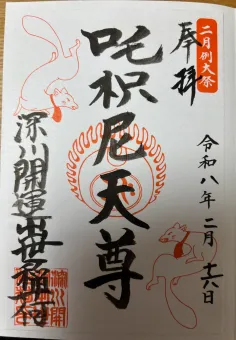 二月例大祭
奉拝
令和八年二月十六日
吒枳尼天尊
深川開運出世稲荷